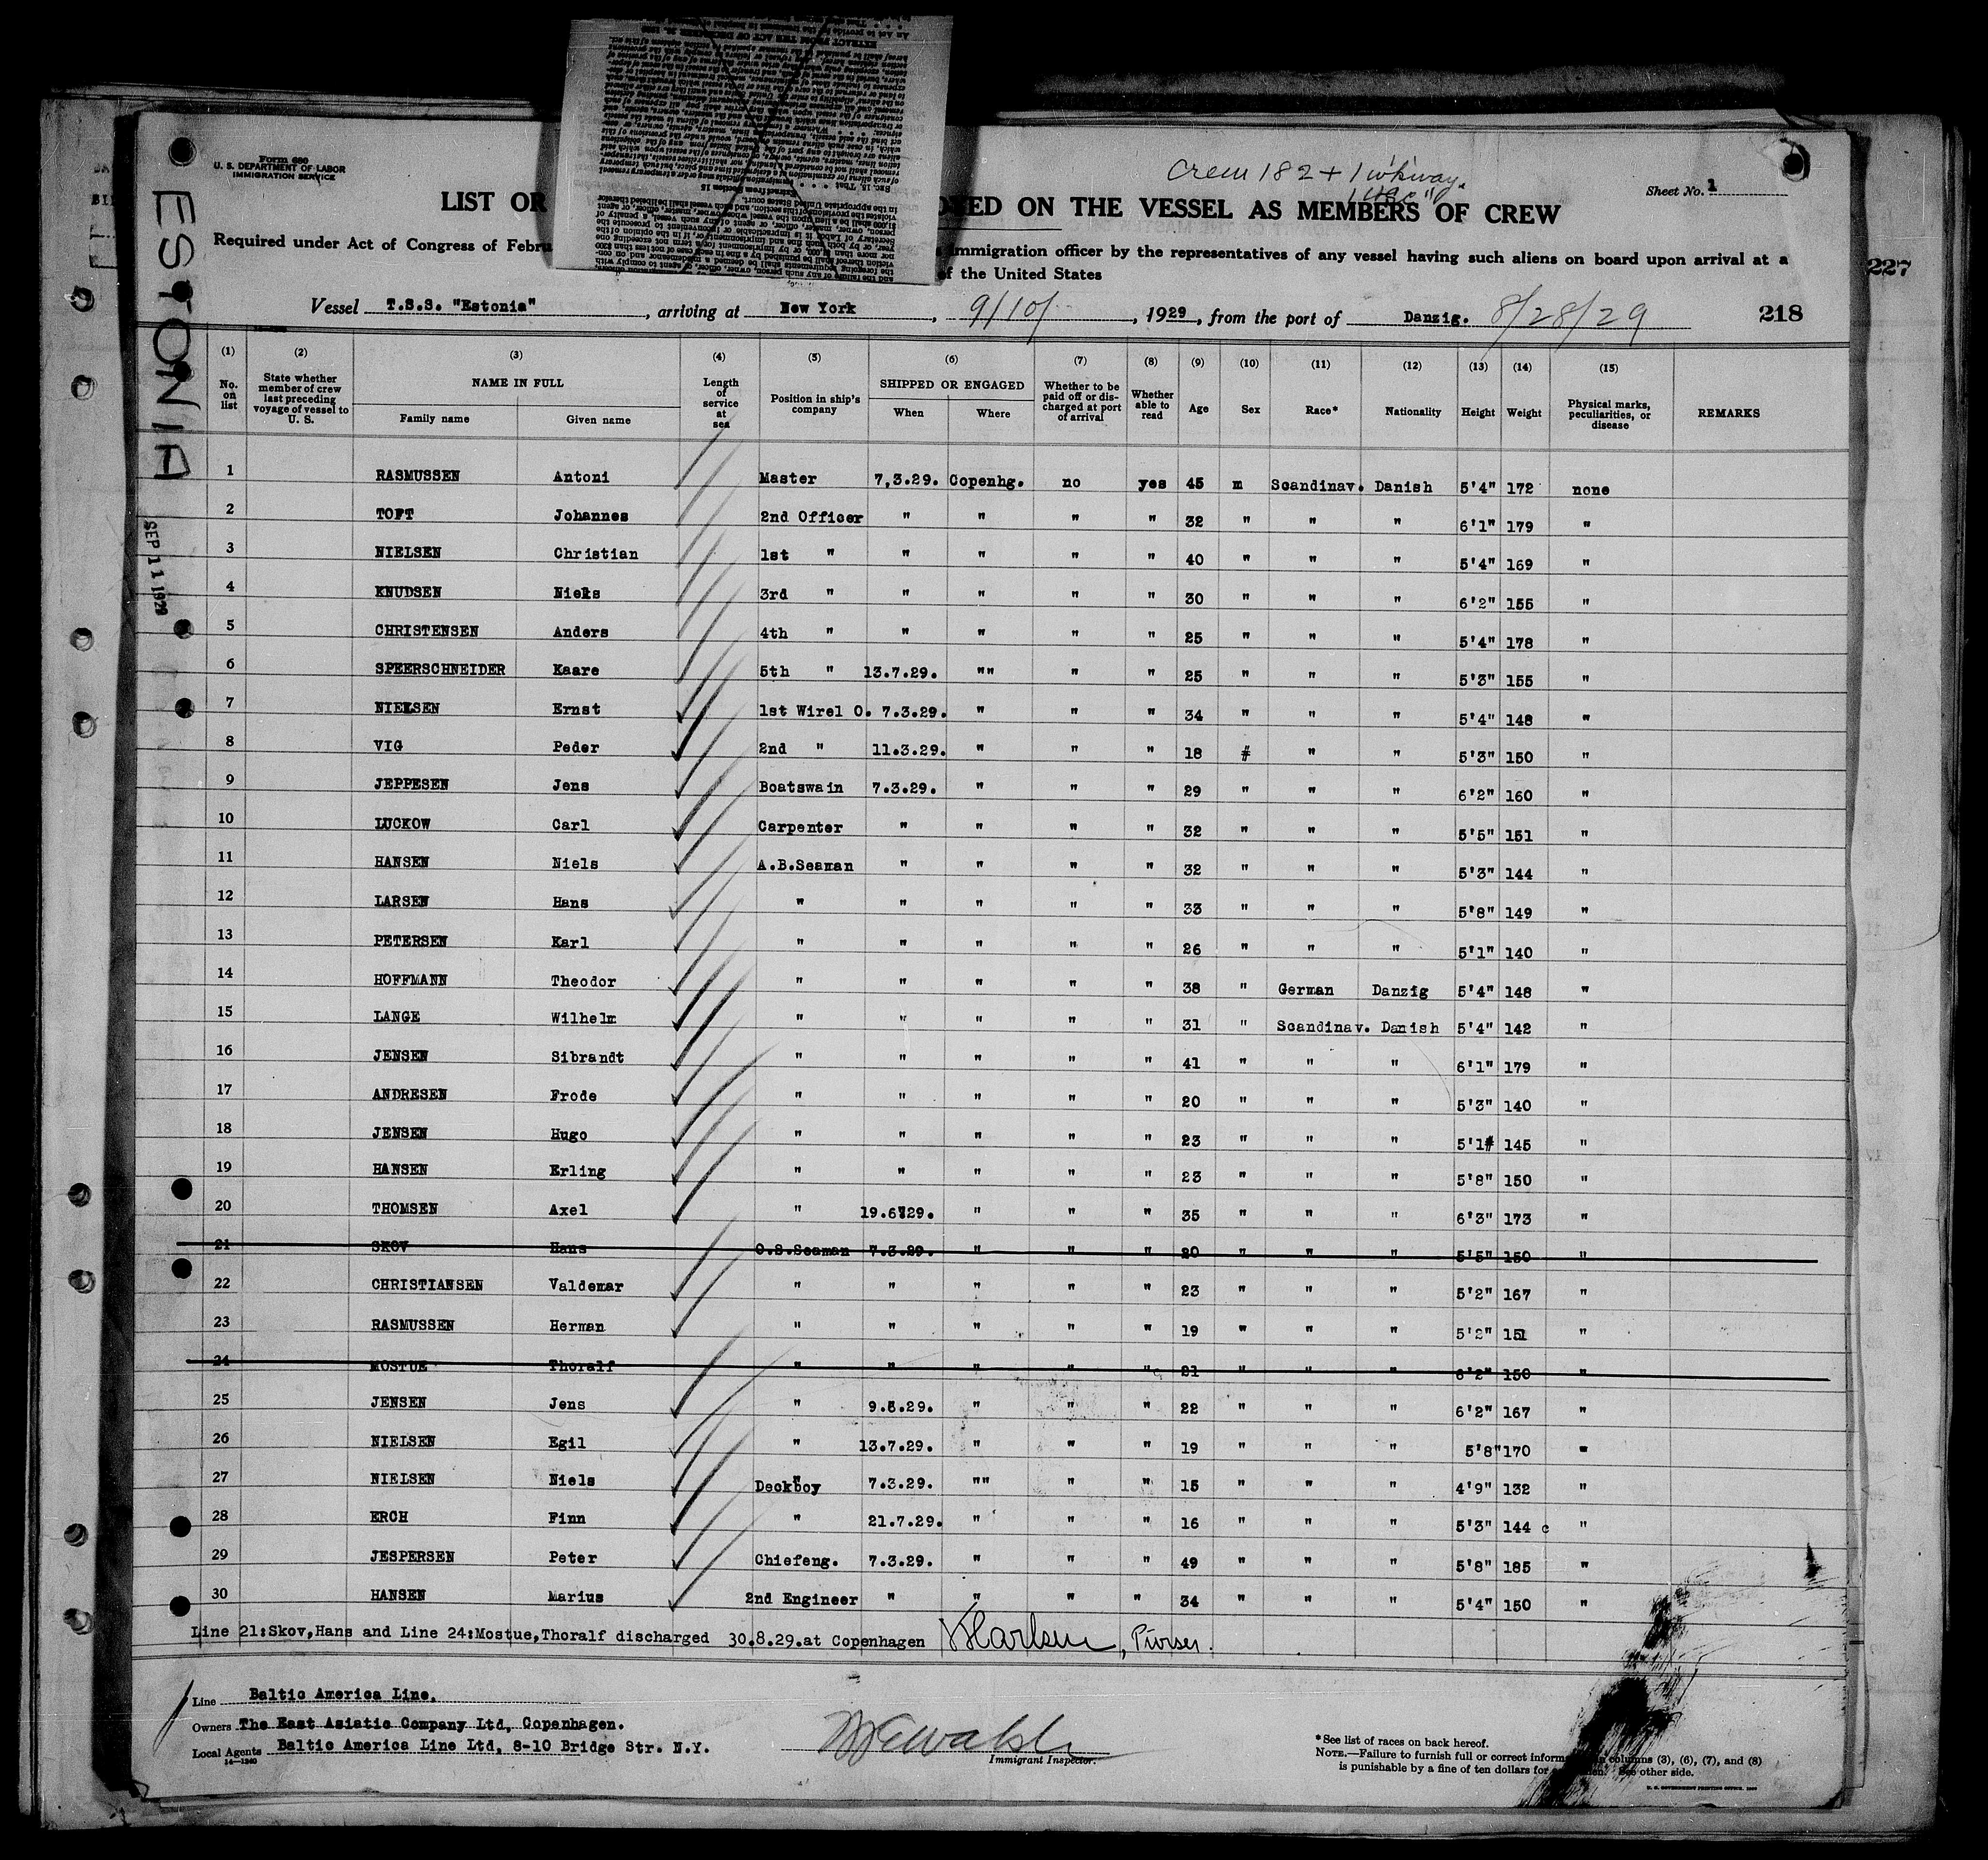 Form 680
U. S. DEPARTMENT OF LABOR
IMMIGRATION SERVICE
Crew 182 + 1 w'kway.
Sheet No. 1
LIST OR ON THE VESSEL AS MEMBERS OF CREW
Required under Act of Congress of Febru immigration officer by the representatives of any vessel having such aliens on board upon arrival at a
of the United States
227
Vessel T.S.S. "Estonia", arriving at New York, 9/10/, 1929, from the port of Danzig. 8/28/29 218
ESTONIA
SEP 11 1929
(1) (2) (3) (4) (5) (6) (7) (8) (9) (10) (11) (12) (13) (14) (15)
No. on list | State whether member of crew last preceding voyage of vessel to U. S. | NAME IN FULL | Length of service at sea | Position in ship's company | SHIPPED OR ENGAGED | Whether to be paid off or discharged at port of arrival | Whether able to read | Age | Sex | Race* | Nationality | Height | Weight | Physical marks, peculiarities, or disease | REMARKS
Family name | Given name | When | Where
1 RASMUSSEN Antoni Master 7,3.29. Copenhg. no yes 45 m Scandinav. Danish 5'4" 172 none
2 TOFT Johannes 2nd Officer " " " " 32 " " " 6'1" 179 "
3 NIELSEN Christian 1st " " " " " 40 " " " 5'4" 169 "
4 KNUDSEN Niels 3rd " " " " " 30 " " " 6'2" 155 "
5 CHRISTENSEN Anders 4th " " " " " 25 " " " 5'4" 178 "
6 SPEERSCHNEIDER Kaare 5th " 13.7.29. "" " " 25 " " " 5'3" 155 "
7 NIELSEN Ernst 1st Wirel O. 7.3.29. " " " 34 " " " 5'4" 148 "
8 VIG Peder 2nd " 11.3.29. " " " 18 # " " 5'3" 150 "
9 JEPPESEN Jens Boatswain 7.3.29. " " " 29 " " " 6'2" 160 "
10 LUCKOW Carl Carpenter " " " " 32 " " " 5'5" 151 "
11 HANSEN Niels A.B.Seaman " " " " 32 " " " 5'3" 144 "
12 LARSEN Hans " " " " " 33 " " " 5'8" 149 "
13 PETERSEN Karl " " " " " 26 " " " 5'1" 140 "
14 HOFFMANN Theodor " " " " " 38 " German Danzig 5'4" 148 "
15 LANGE Wilhelm " " " " " 31 " Scandinav. Danish 5'4" 142 "
16 JENSEN Sibrandt " " " " " 41 " " " 6'1" 179 "
17 ANDRESEN Frode " " " " " 20 " " " 5'3" 140 "
18 JENSEN Hugo " " " " " 23 " " " 5'1# 145 "
19 HANSEN Erling " " " " " 23 " " " 5'8" 150 "
20 THOMSEN Axel " 19.6.29. " " " 35 " " " 6'3" 173 "
21 SKOV Hans O.S.Seaman 7.3.29. " " " 20 " " " 5'5" 150 "
22 CHRISTIANSEN Valdemar " " " " " 23 " " " 5'2" 167 "
23 RASMUSSEN Herman " " " " " 19 " " " 5'2" 151 "
24 MOSTUE Thoralf " " " " " 21 " " " 6'2" 150 "
25 JENSEN Jens " 9.5.29. " " " 22 " " " 6'2" 167 "
26 NIELSEN Egil " 13.7.29. " " " 19 " " " 5'8" 170 "
27 NIELSEN Niels Deckboy 7.3.29. "" " " 15 " " " 4'9" 132 "
28 ERCH Finn " 21.7.29. " " " 16 " " " 5'3" 144 c "
29 JESPERSEN Peter Chiefeng. 7.3.29. " " " 49 " " " 5'8" 185 "
30 HANSEN Marius 2nd Engineer " " " " 34 " " " 5'4" 150 "
Line 21:Skov,Hans and Line 24:Mostue,Thoralf discharged 30.8.29.at Copenhagen , Purser.
Line Baltic America Line.
Owners The East Asiatic Company Ltd, Copenhagen.
Local Agents Baltic America Line Ltd, 8-10 Bridge Str. N.Y.
14—1240
Immigrant Inspector.
*See list of races on back hereof.
NOTE.—Failure to furnish full or correct inform columns (3), (6), (7), and (8)
is punishable by a fine of ten dollars for See other side.
U. S. GOVERNMENT PRINTING OFFICE